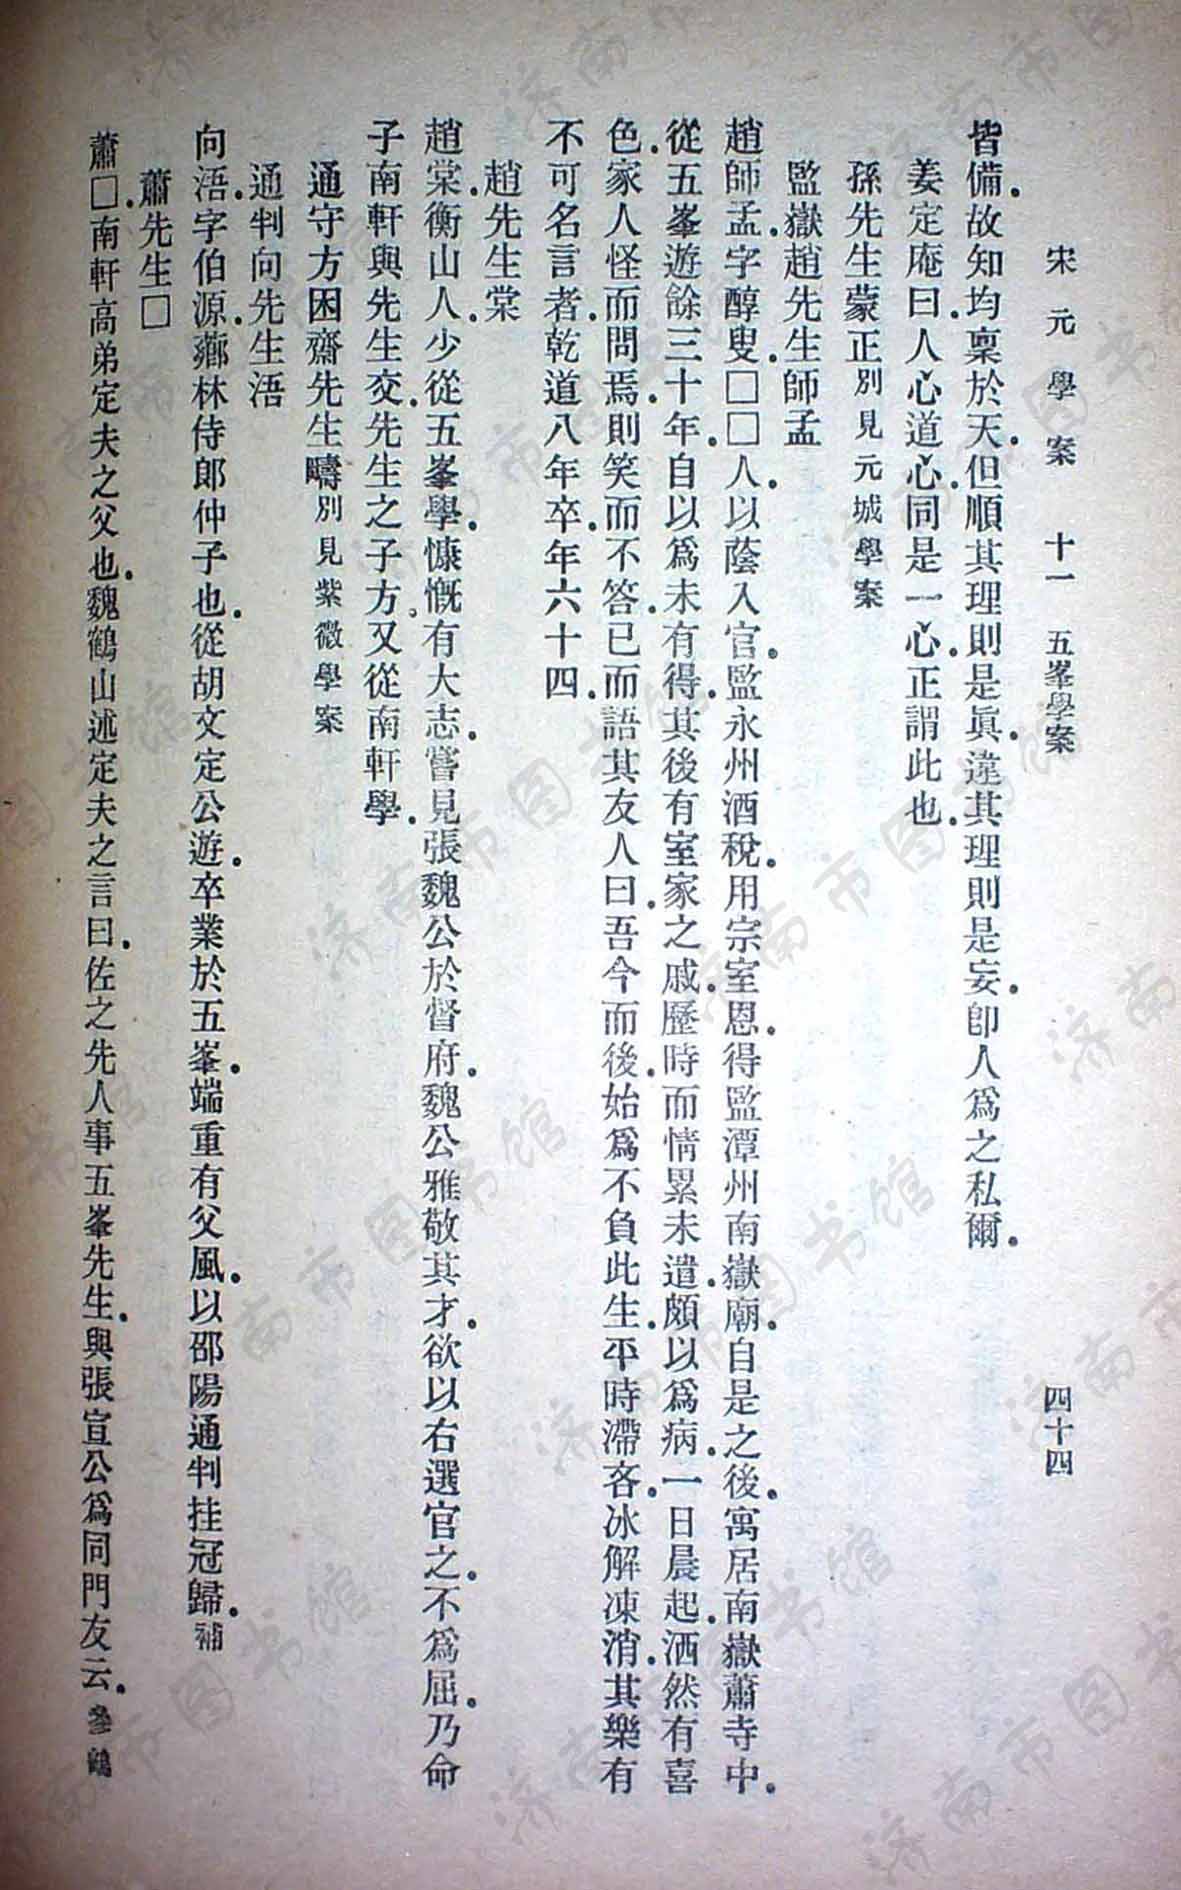 宋元學案　十一　五峯學案　四十四
皆備．故知均稟於天．但順其理則是眞．違其理則是妄．卽人爲之私爾．
姜定庵曰．人心道心．同是一心．正謂此也．
孫先生蒙正別見元城學案
監嶽趙先生師孟
趙師孟．字醇叟．□□人．以蔭入官．監永州酒稅．用宗室恩．得監潭州南嶽廟．自是之後．寓居南嶽蕭寺中．
從五峯遊餘三十年．自以爲未有得．其後有室家之戚．歷時而情累未遣．頗以爲病．一日晨起．洒然有喜
色．家人怪而問焉．則笑而不答．已而語其友人曰．吾今而後．始爲不負此生．平時滯吝．冰解凍消．其樂有
不可名言者．乾道八年卒．年六十四．
趙先生棠
趙棠．衡山人．少從五峯學．慷慨有大志．嘗見張魏公於督府．魏公雅敬其才．欲以右選官之．不爲屈．乃命
子南軒與先生交．先生之子方。又從南軒學．
通守方困齋先生疇別見紫微學案
通判向先生浯
向浯．字伯源．薌林侍郎仲子也．從胡文定公遊．卒業於五峯．端重有父風．以邵陽通判挂冠歸．補
蕭先生□
蕭□．南軒高弟定夫之父也．魏鶴山述定夫之言曰．佐之先人事五峯先生．與張宣公爲同門友云．參鶴
濟南市图书馆